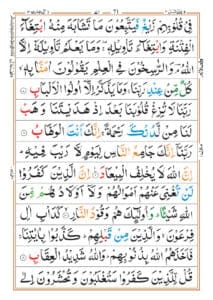 فِيْ قُلُوْبِهِمْ زَيْغٌ فَيَتَّبِعُوْنَ مَا تَشَابَهَ مِنْهُ ابْتِغَآءَ
الْفِتْنَةِ وَابْتِغَآءَ تَاْوِيْلِهٖ ۚ وَمَا يَعْلَمُ تَاْوِيْلَهٗۤ اِلَّا
اللّٰهُ ۘ وَالرّٰسِخُوْنَ فِي الْعِلْمِ يَقُوْلُوْنَ اٰمَنَّا بِهٖ ۙ
كُلٌّ مِّنْ عِنْدِ رَبِّنَا ۚ وَمَا يَذَّكَّرُ اِلَّاۤ اُولُوا الْاَلْبَابِ
رَبَّنَا لَا تُزِغْ قُلُوْبَنَا بَعْدَ اِذْ هَدَيْتَنَا وَهَبْ
لَنَا مِنْ لَّدُنْكَ رَحْمَةً ۚ اِنَّكَ اَنْتَ الْوَهَّابُ
رَبَّنَاۤ اِنَّكَ جَامِعُ النَّاسِ لِيَوْمٍ لَّا رَيْبَ فِيْهِ ؕ
اِنَّ اللّٰهَ لَا يُخْلِفُ الْمِيْعَادَ اِنَّ الَّذِيْنَ كَفَرُوْا
لَنْ تُغْنِيَ عَنْهُمْ اَمْوَالُهُمْ وَلَاۤ اَوْلَادُهُمْ مِّنَ
اللّٰهِ شَيْـًٔا ؕ وَاُولٰٓئِكَ هُمْ وَقُوْدُ النَّارِ كَدَاْبِ اٰلِ
فِرْعَوْنَ ۙ وَالَّذِيْنَ مِنْ قَبْلِهِمْ ؕ كَذَّبُوْا بِاٰيٰتِنَا ۚ
فَاَخَذَهُمُ اللّٰهُ بِذُنُوْبِهِمْ ؕ وَاللّٰهُ شَدِيْدُ الْعِقَابِ
قُلْ لِّلَّذِيْنَ كَفَرُوْا سَتُغْلَبُوْنَ وَتُحْشَرُوْنَ اِلٰى